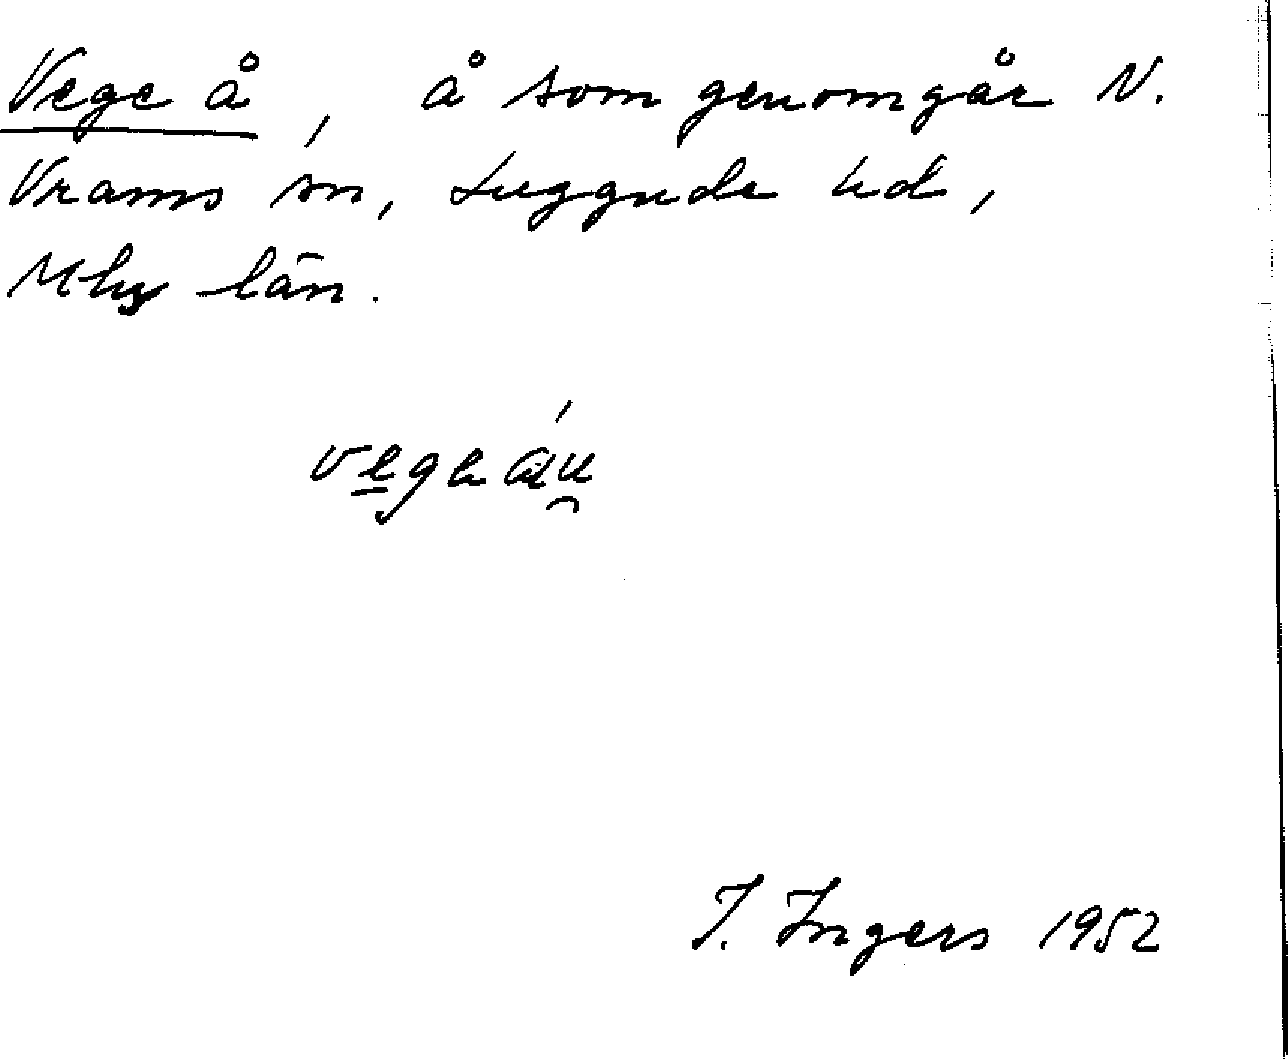 Vege å, å som genomgår N.
Vrams sn, Luggude hd,
Mlhs län.
J. Ingers 1952